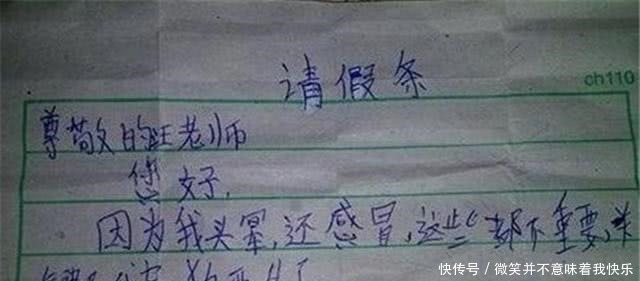 请假条
ch110
尊敬的旺老师
您好,
因为我头晕,还感冒,这些都不重要,关
快传号/微笑并不意味着我快乐